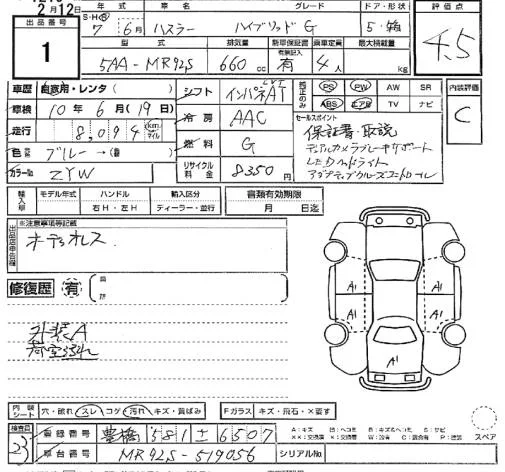 2月12日
年式 車名 グレード ドア・形状 評価点
出品番号 S・H・R 7年 6月 ハスラー ハイブリッド G 5・箱 4.5
1
型式 排気量 新車保証書 乗車定員 最大積載量
有無記入
5AA-MR92S 660cc 有 4人 kg
車歴 自家用・レンタ( ) シフト インパネAT
車検 10年 6月(19日) 冷房 AAC
走行 8,094 km マイル 燃料 G
色 ブルー→( ) リサイクル料金 8350円
カラーNo ZYW
純正のみ PS PW AW SR
ABS エアB TV ナビ
内装評価 C
セールスポイント
保証書・取説
デュアルカメラブレーキサポート
LEDヘッドライト
アダプティブクルーズコントロール
輸入車 モデル年式 ハンドル 輸入区分 書類有効期限
右H・左H ディーラー・並行 月 日迄
出品店申告欄 ※注意事項等記載
オーディオレス
修復歴 (有) 箇所
外装A
荷室汚れ
A1 A1
A1 A1
A1
内装シート 穴・破れ スレ コゲ 汚れ キズ・黄ばみ Fガラス キズ・飛石・X要す
検査員 23
登録番号 豊橋 581 ± 6507
車台番号 MR92S-519056 シリアルNo
スペア